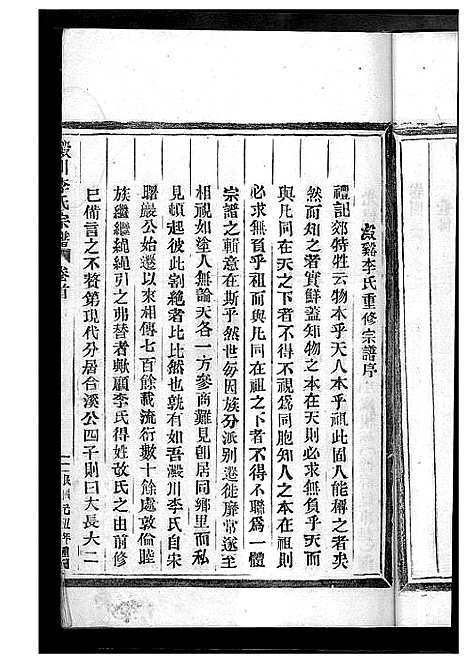 澱谿李氏重修宗譜序
禮記郊特牲云物本乎天人本乎祖此固人能稱之者矣
然而知之者實鮮蓋知物之本在天則必求無負乎天而
與凡同在天之下者不得不視為同胞知人之本在祖則
必求無負乎祖而與凡同在祖之下者不得不聯為一體
宗譜之斬意在斯乎然世每因族分派別遷徙靡常遂至
相視如塗人無論天各一方參商難見朝居同鄉里而私
見頓起割絶者比比然也就有如吾澱川李氏自宋
曙巖公始遷以來相傳七百餘載流衍數十餘處敦倫睦
族繼繼繩繩引之弗替者歟顧李氏得姓改氏之由前修
已備言之不贅第現代分居合溪公四子則曰大長大二
澱川李氏宗譜 卷首